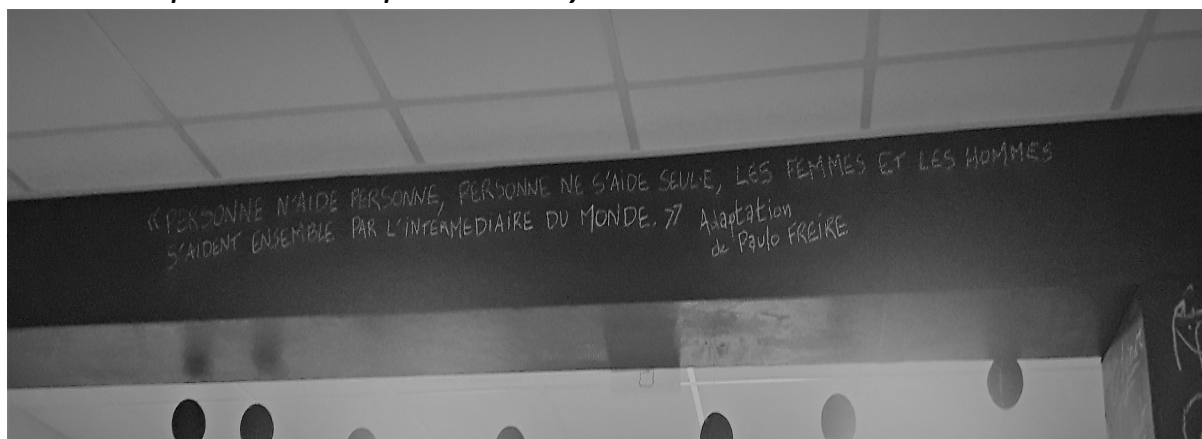 « PERSONNE N'AIDE PERSONNE, PERSONNE NE S'AIDE SEUL·E, LES FEMMES ET LES HOMMES
S'AIDENT ENSEMBLE PAR L'INTERMEDIAIRE DU MONDE. » Adaptation
de Paulo FREIRE